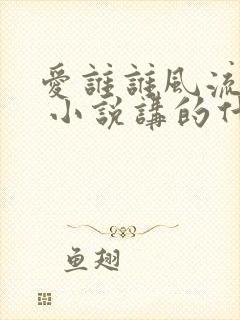 愛誰誰風流
小說講的什
鱼翅